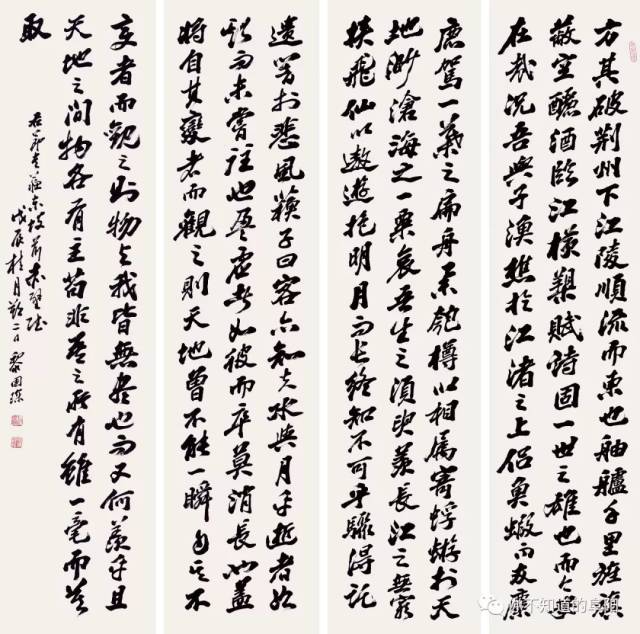 方其破荆州下江陵順流而東也舳艫千里旌旗
蔽空釃酒臨江橫槊賦詩固一世之雄也而今安
在哉況吾與子漁樵於江渚之上侶魚蝦而友麋
鹿駕一葉之扁舟舉匏樽以相屬寄蜉蝣於天
地渺滄海之一粟哀吾生之須臾羨長江之無窮
挾飛仙以遨遊抱明月而長終知不可乎驟得託
遺響於悲風蘇子曰客亦知夫水與月乎逝者如
斯而未嘗往也盈虛者如彼而卒莫消長也蓋
將自其變者而觀之則天地曾不能一瞬自其不
變者而觀之則物與我皆無盡也而又何羨乎且
天地之間物各有主苟非吾之所有雖一毫而莫
取
蘇東坡前赤壁賦
戊辰桂月 二日
你不知道的阜阳